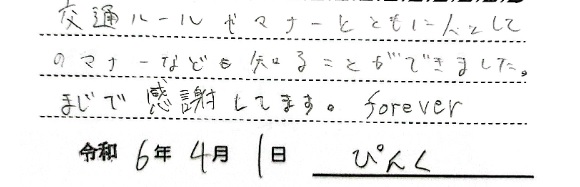 交通ルールやマナーとともに人として
のマナーなども知ることができました。
まじで感謝してます。forever
令和6年4月1日 ぴんく